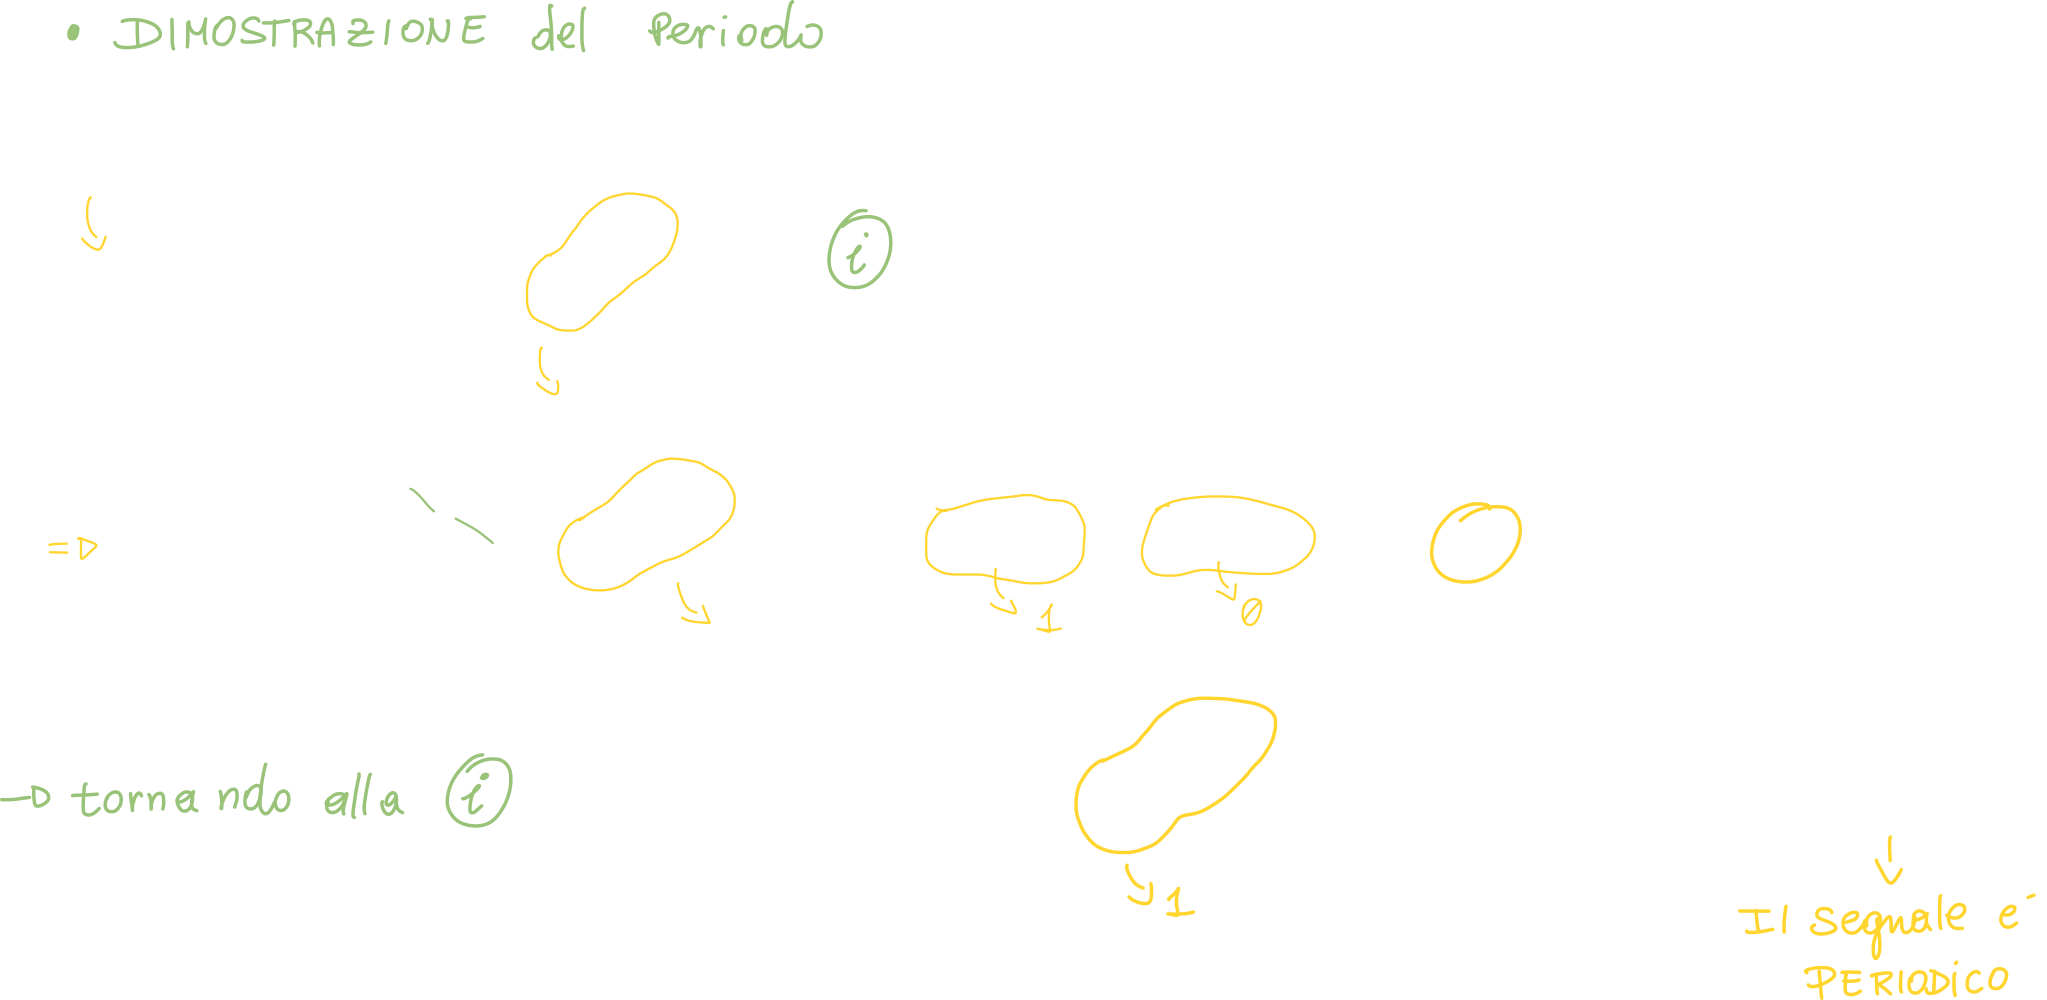 • DIMOSTRAZIONE del Periodo
i
=▷
1
0
→ tornando alla i
1
Il segnale e'
PERIODICO